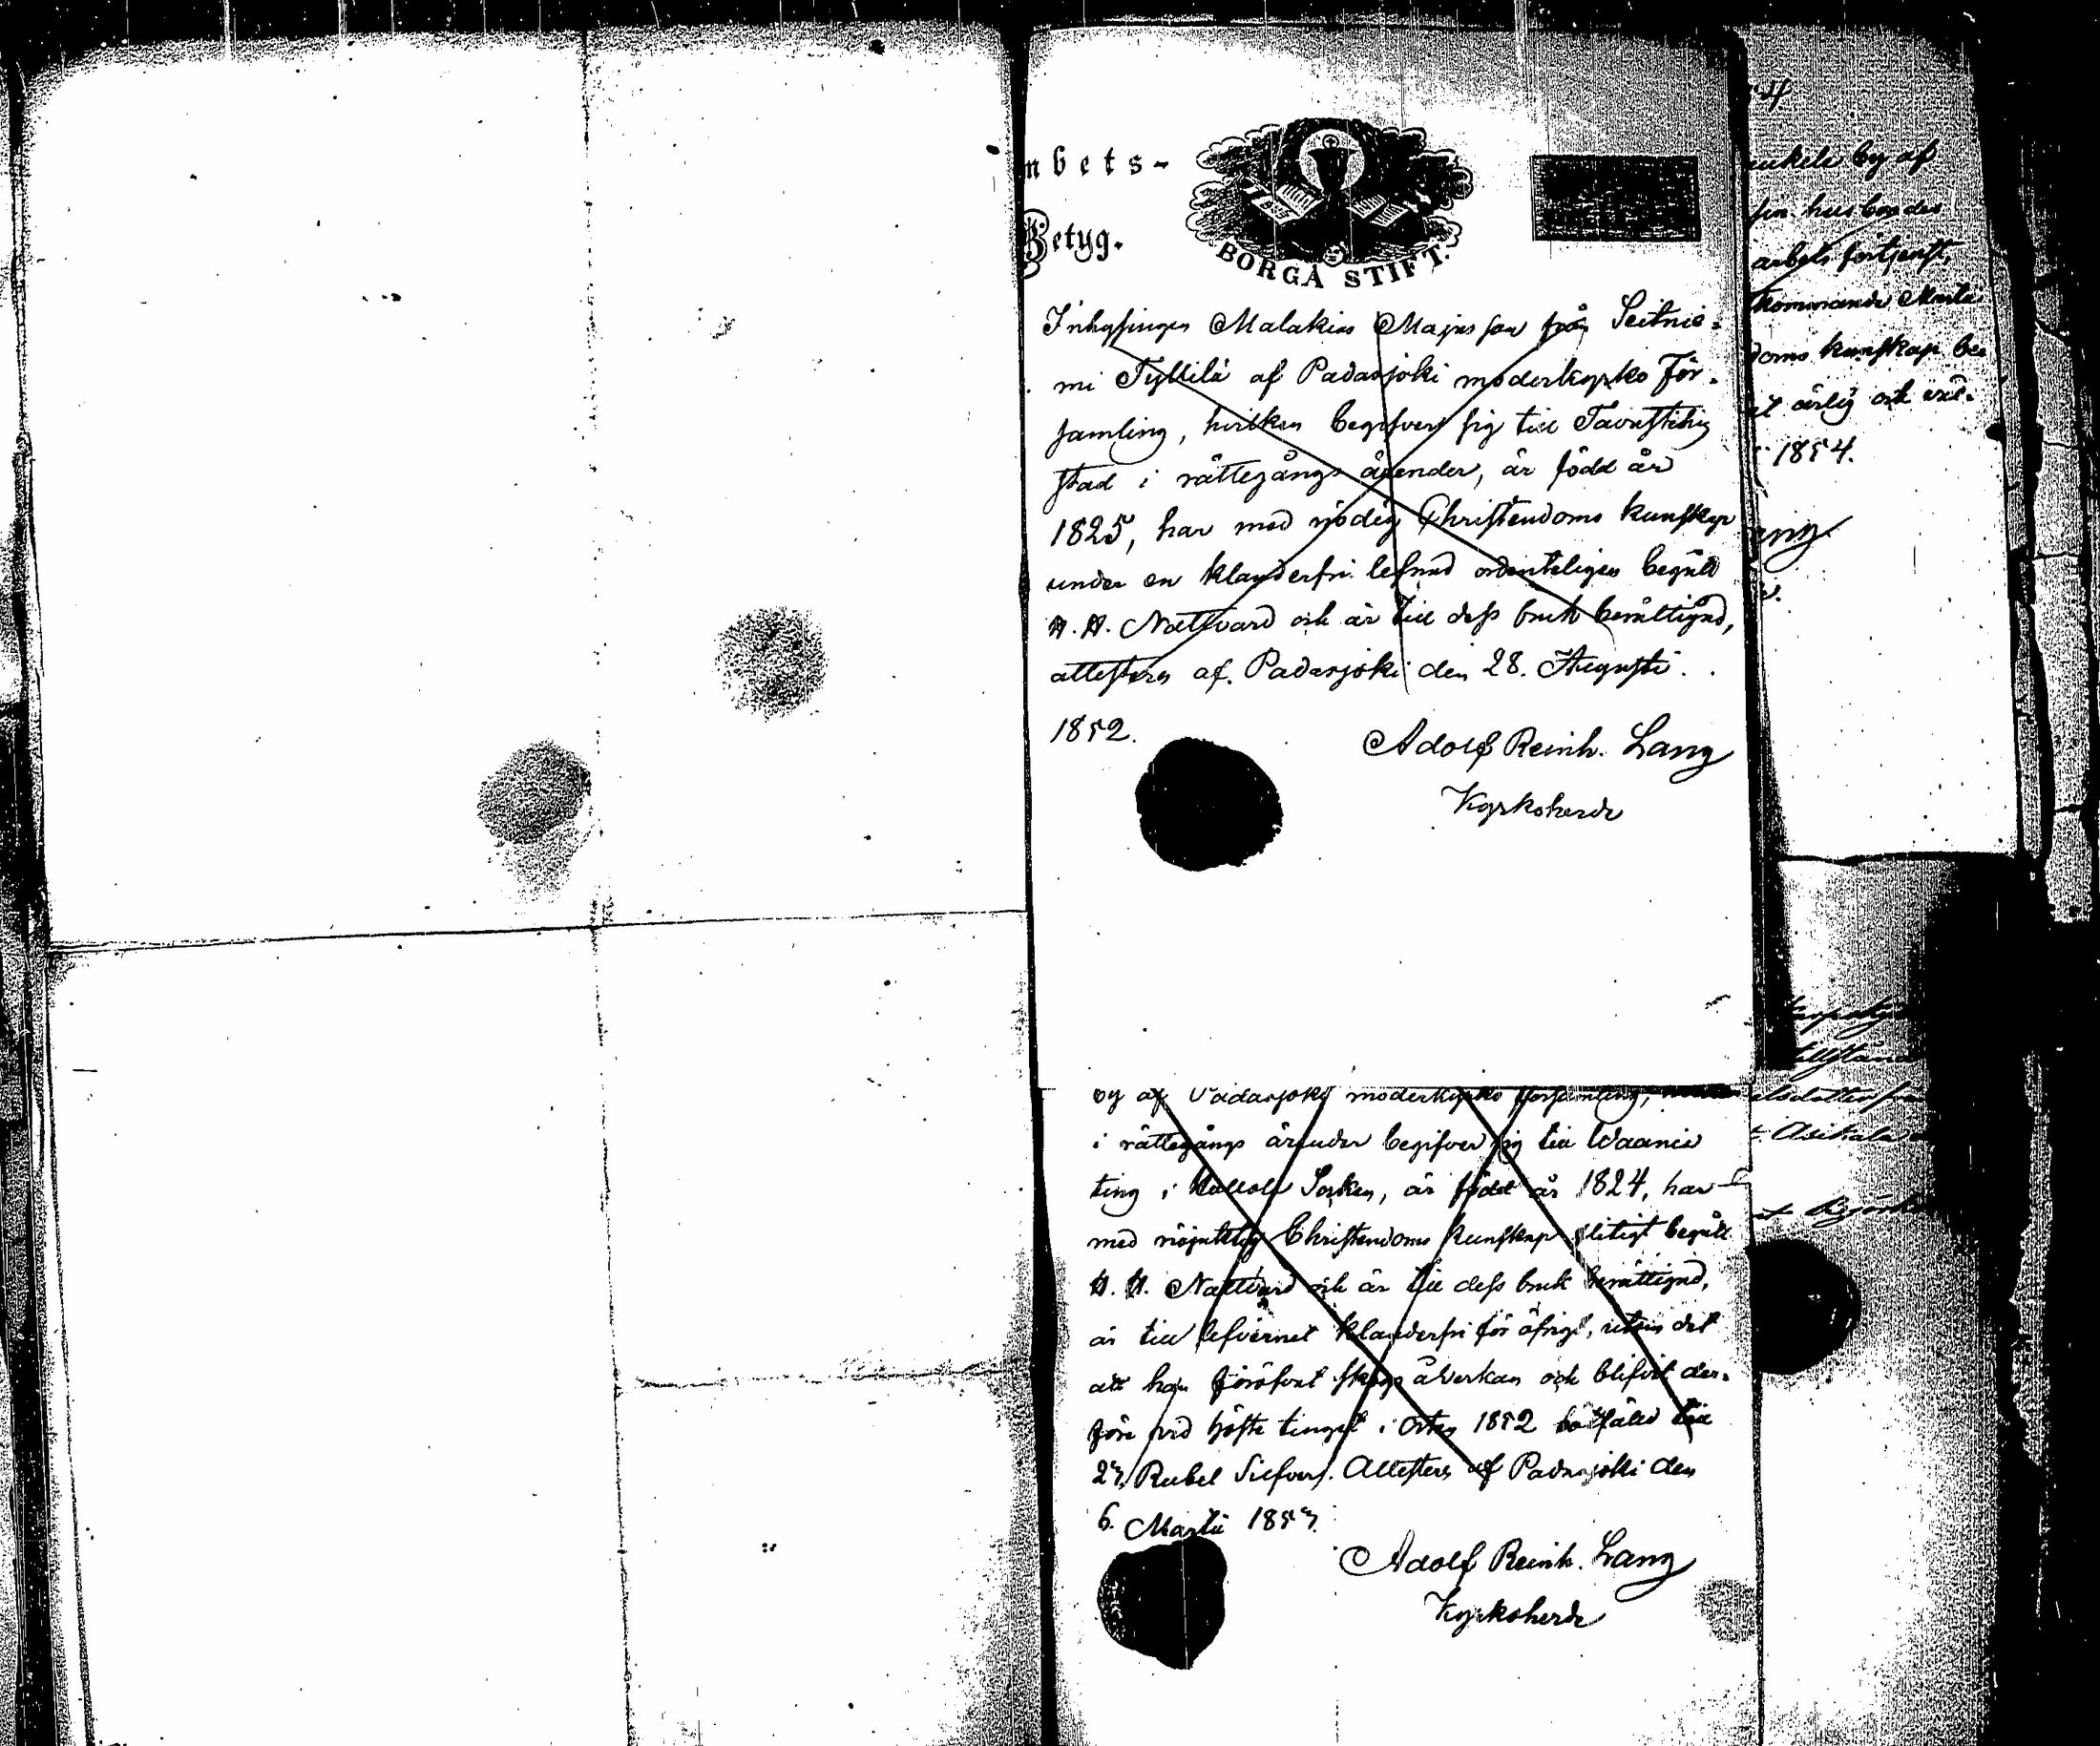 mbets-
Betyg.
BORGÅ STIFT.
Inhysingen Malakias Majasson från Seitnie-
mi Tyllilä af Padasjoki moderkyrko För-
samling, hvilken begifver sig till Tavastehus
stad i rättegångs ärender, är född år
1825, har med nödig Christendoms kunskap
under en klanderfri lefnad ordenteligen begått
H. H. Nattvard och är till dess bruk berättigad,
attesteras af. Padasjoki den 28. Augusti
1852.
Adolf Reinh. Lang
Kyrkoherde
by af Padasjoki moderkyrko församling,
i rättegångs ärender begifver sig till Waania
ting i Kallola Socken, är född år 1824, har
med nöjaktig Christendoms kunskap flitigt begått
H. H. Nattvard och är till dess bruk berättigad,
är till lefvernet klanderfri för öfrigt, utan det
att han föröfvat skogs åverkan och blifvit der-
före vid höste tinget i orten 1852 bötfälld till
27, Rubel Silfver. Attesteras af Padasjoki den
6. Martii 1853.
Adolf Reinh. Lang
Kyrkoherde
4
by af
husbondes
arbets förtjenst,
kommande Martii
doms kunskap be
ärlig och väl-
1854.
Asikala